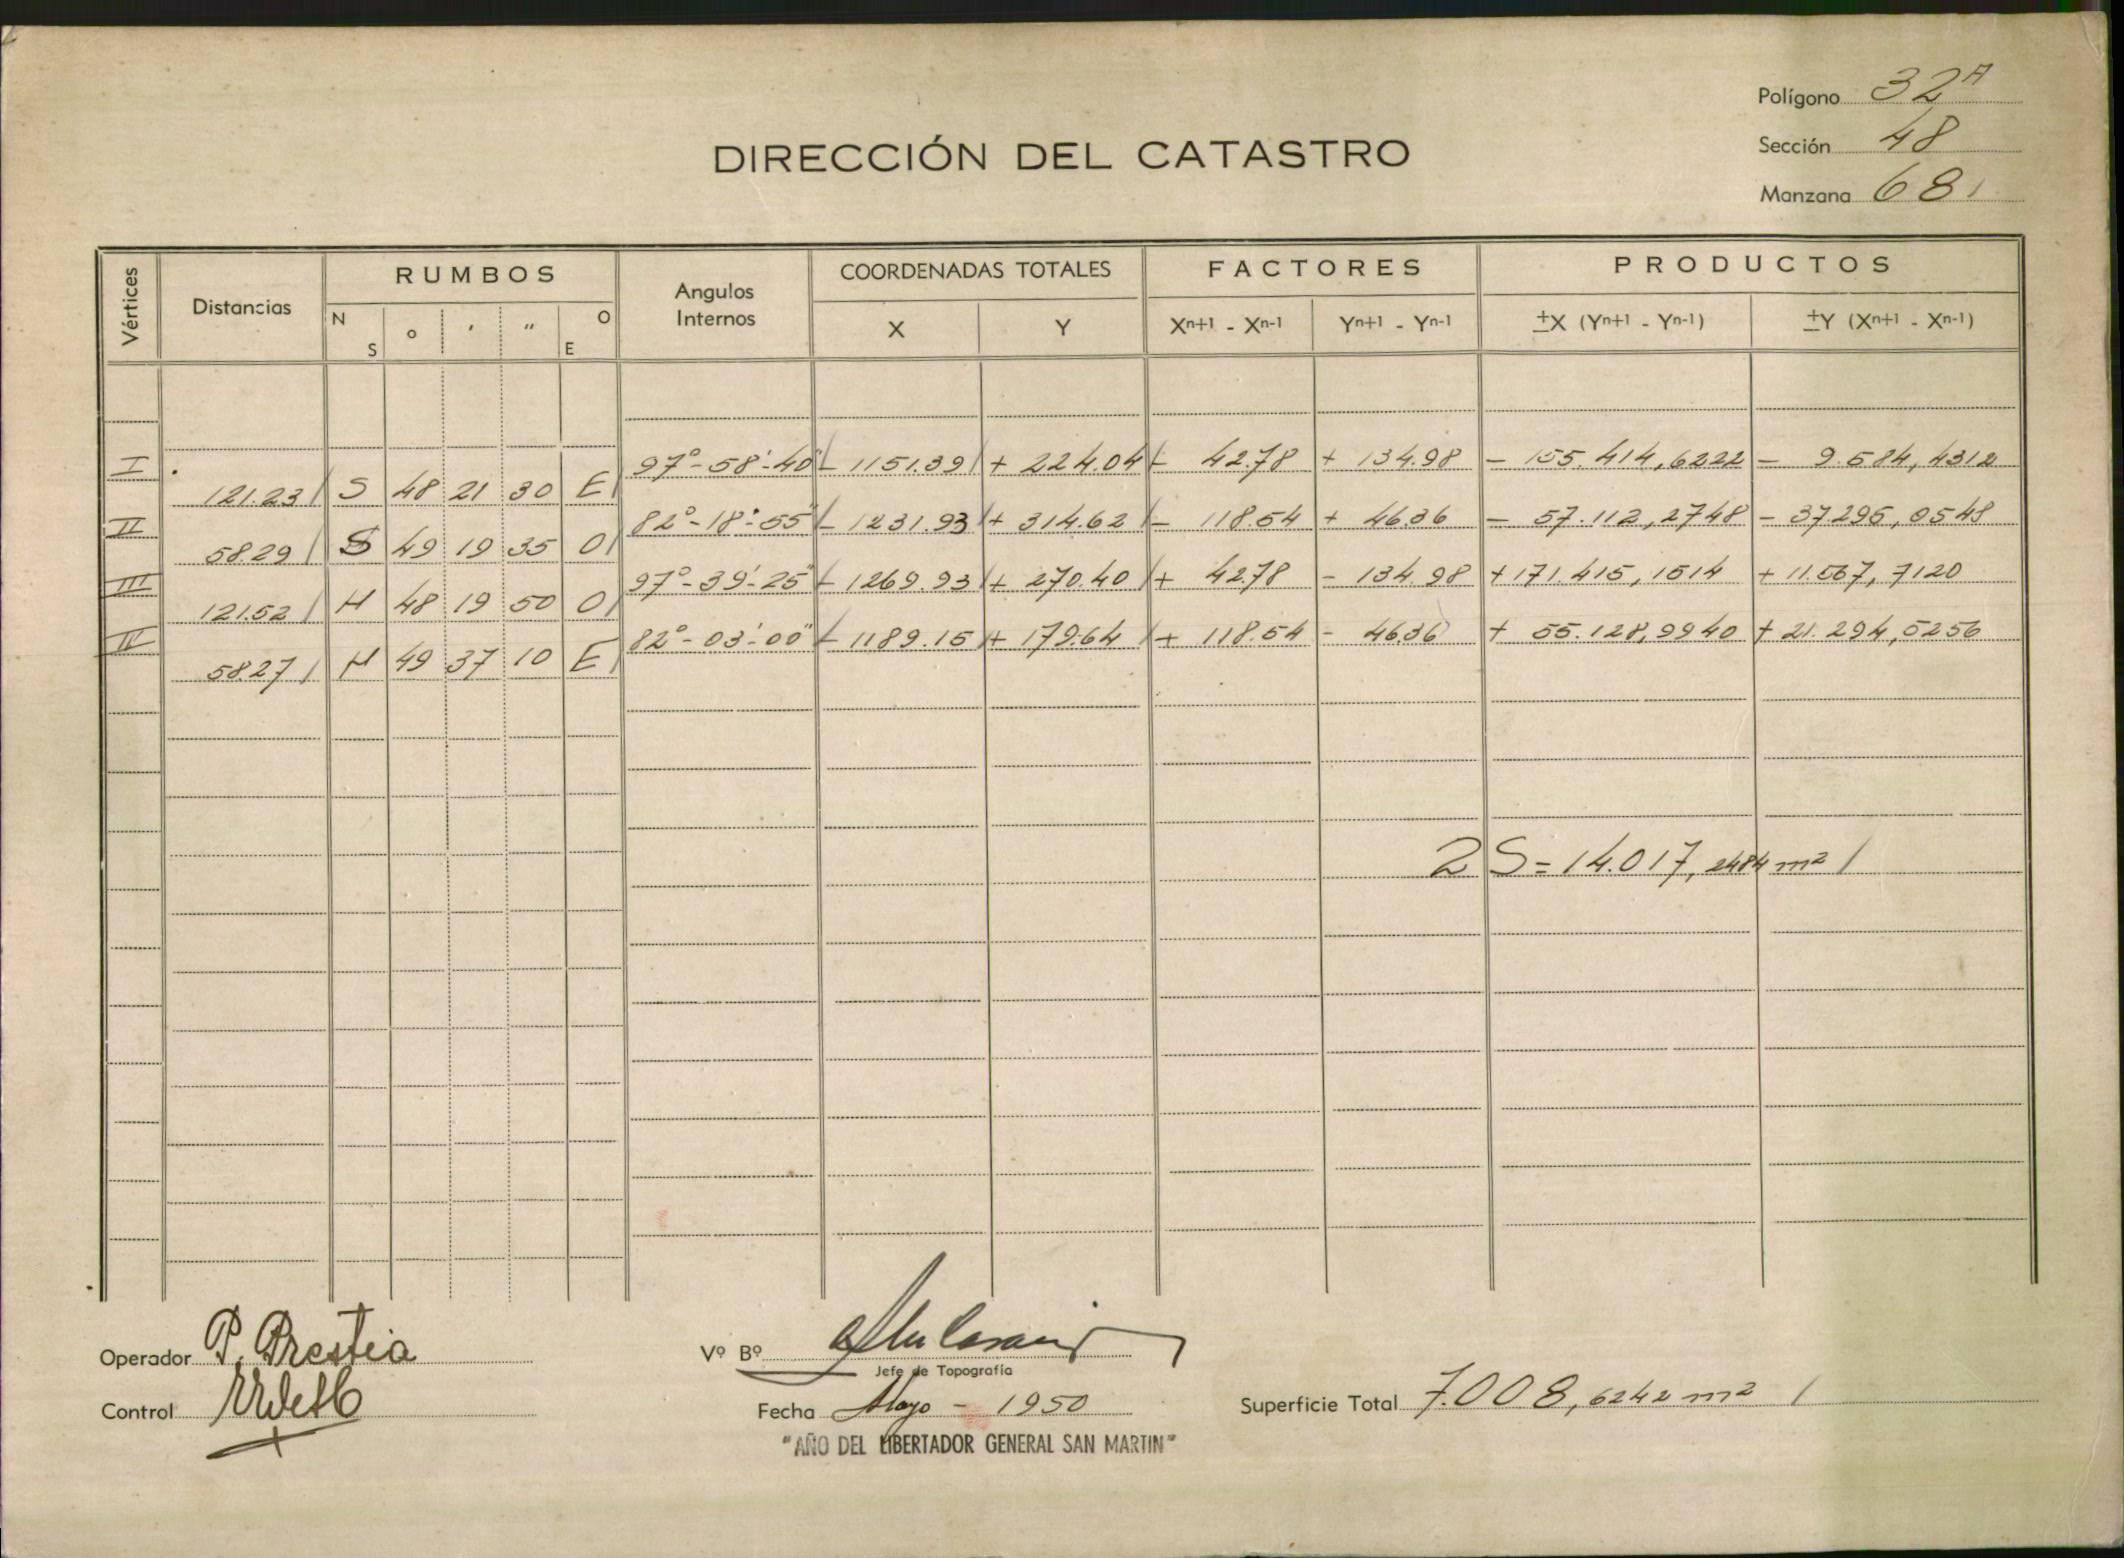 Polígono 32A
Sección 48
Manzana 68 /
DIRECCIÓN DEL CATASTRO
Vértices Distancias RUMBOS Angulos Internos COORDENADAS TOTALES FACTORES PRODUCTOS
N S ° ' " O E X Y Xn+1 - Xn-1 Yn+1 - Yn-1 ±X (Yn+1 - Yn-1) ±Y (Xn+1 - Xn-1)
I 97°-58'-40" - 1151.39 / + 224.04 / - 42.78 + 134.98 - 155.414,6222 - 9.584,4312
121.23 / S 48 21 30 E /
II 82°-18'-55" - 1231.93 / + 314.62 / - 118.54 + 46.36 - 57.112,2748 - 37295,0548
58.29 / S 49 19 35 O /
III 97°-39'-25" - 1269.93 / + 270.40 / + 42.78 - 134.98 + 171.415,1514 + 11.567,7120
121.52 / N 48 19 50 O /
IV 82°-03'-00" - 1189.15 / + 179.64 / + 118.54 - 46.36 + 55.128,9940 + 21.294,5256
58.27 / N 49 37 10 E /
2 S = 14.017,2484 m² /
Operador P. Prestia
Vº Bº
Jefe de Topografía
Control
Fecha Mayo - 1950
Superficie Total 7.008,6242 m² /
"AÑO DEL LIBERTADOR GENERAL SAN MARTIN"